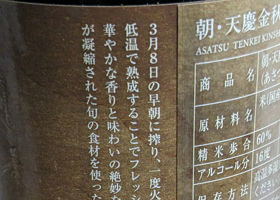 朝・天慶金秋
ASATSU TENKEI KINSH
商品名
朝・天
（あさつ
原材料名
米（国産
精米歩合
60%
アルコール分
16度
保存方法
高温多湿
くださ
3月8日の早朝に搾り、一度火
低温で熟成することでフレッシ
華やかな香りと味わいの絶妙な
が凝縮された旬の食材を使った